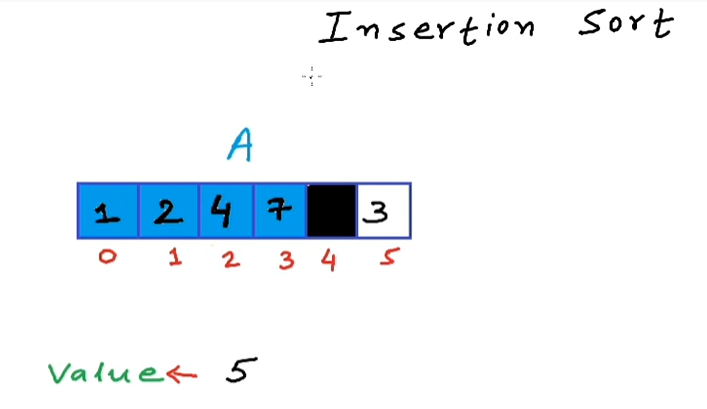 Insertion Sort
A
1 2 4 7 3
0 1 2 3 4 5
Value ← 5